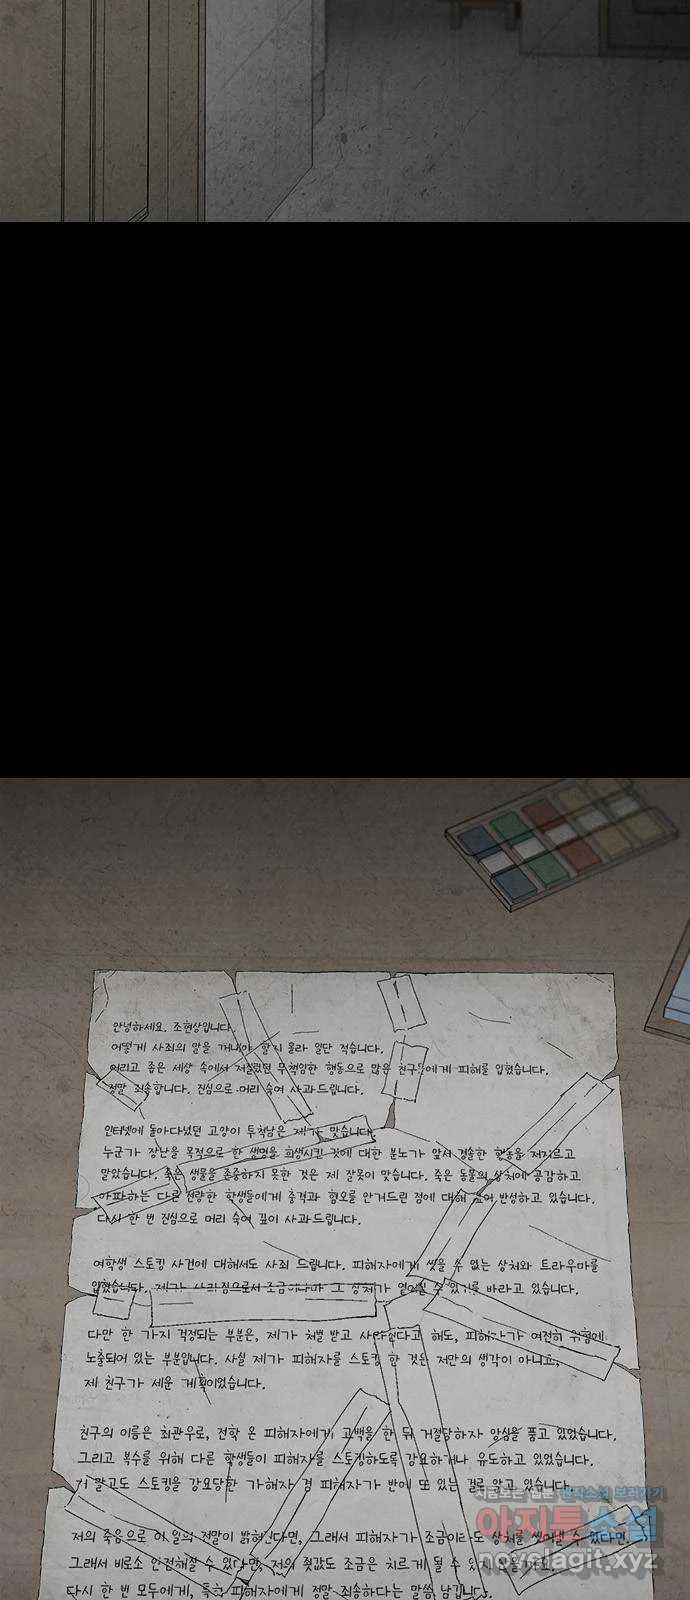 안녕하세요. 조현상입니다.
어떻게 사죄의 말을 꺼내야 할지 몰라 일단 적습니다.
어리고 좁은 세상 속에서 저질렀던 무책임한 행동으로 많은 친구들에게 피해를 입혔습니다.
정말 죄송합니다. 진심으로 머리 숙여 사과드립니다.
인터넷에 돌아다녔던 고양이 투척남은 제가 맞습니다.
누군가 장난을 목적으로 한 생명을 희생시킨 것에 대한 분노가 앞서 경솔한 행동을 저지르고
말았습니다. 죽은 생물을 존중하지 못한 것은 제 잘못이 맞습니다. 죽은 동물의 상처에 공감하고
아파하는 다른 선량한 학생들에게 충격과 혐오를 안겨드린 점에 대해 깊이 반성하고 있습니다.
다시 한 번 진심으로 머리 숙여 깊이 사과드립니다.
여학생 스토킹 사건에 대해서도 사죄 드립니다. 피해자에게 씻을 수 없는 상처와 트라우마를
입혔습니다. 제가 사라짐으로서 조금이나마 그 상처가 옅어질 수 있기를 바라고 있습니다.
다만 한 가지 걱정되는 부분은, 제가 처벌 받고 사라진다고 해도, 피해자가 여전히 위험에
노출되어 있는 부분입니다. 사실 제가 피해자를 스토킹 한 것은 저만의 생각이 아니고,
제 친구가 세운 계획이었습니다.
친구의 이름은 최관우로, 전학 온 피해자에게 고백을 한 뒤 거절당하자 앙심을 품고 있었습니다.
그리고 복수를 위해 다른 학생들이 피해자를 스토킹하도록 강요하거나 유도하고 있었습니다.
저 말고도 스토킹을 강요당한 가해자 겸 피해자가 반에 또 있는 걸로 알고 있습니다.
지금보는 웹툰 웹소설 보러가기
아지툰소설
저의 죽음으로 이 일의 전말이 밝혀진다면, 그래서 피해자가 조금이라도 상처를 씻어낼 수 있다면,
novelagit.xyz
그래서 비로소 안전해질 수 있다면, 저의 죗값도 조금은 치르게 될 수 있지
다시 한 번 모두에게, 특히 피해자에게 정말 죄송하다는 말씀 남깁니다.